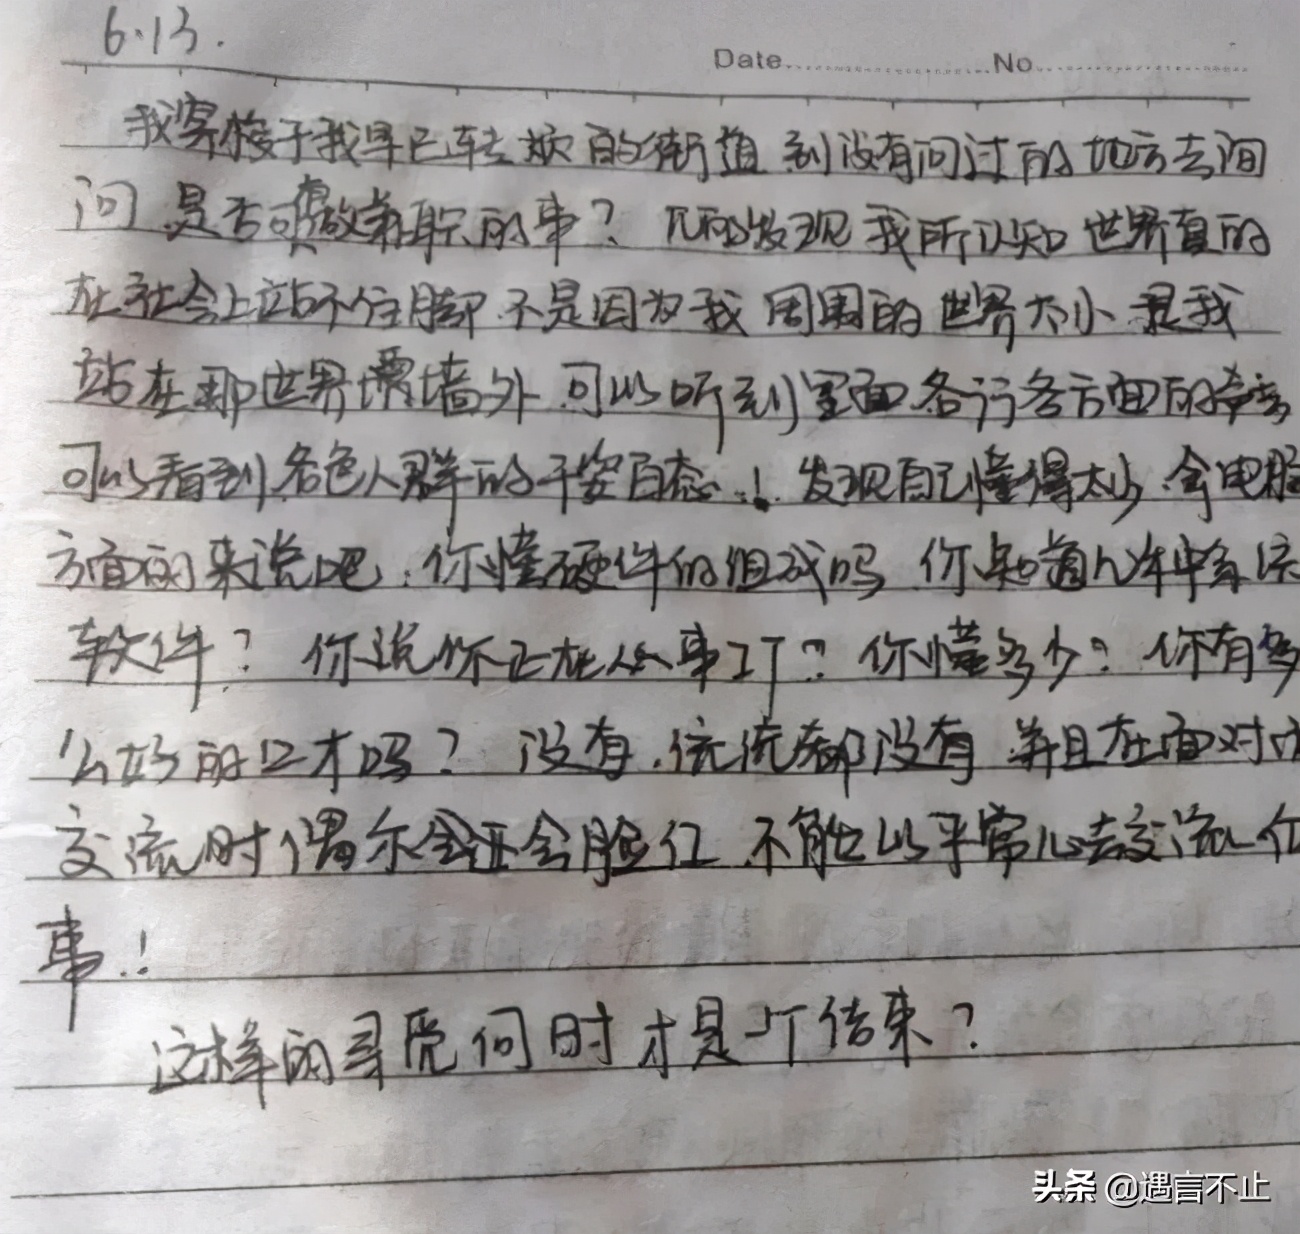 6.13.
Date No
我穿梭于我早已转点的街道 到没有问过的地方去询
问 是否可做兼职的事? 问的发现 我所认知世界真的
在社会上站不住脚 不是因为我 周围的世界太小 是我
站在那世界墙外 可以听到里面各行各方面的声音
可以看到各色人群的千姿百态..! 发现自己懂得太少 拿电脑
方面的来说吧. 你懂硬件的组成吗 你知道几种系统
软件? 你说你正在从事IT? 你懂多少? 你有多
么好的口才吗? 没有. 统统都没有 并且在面对
交流时偶尔会还会脸红 不能以平常心去交流
事!
这样的寻觅何时才是个结束?
头条 @遇言不止